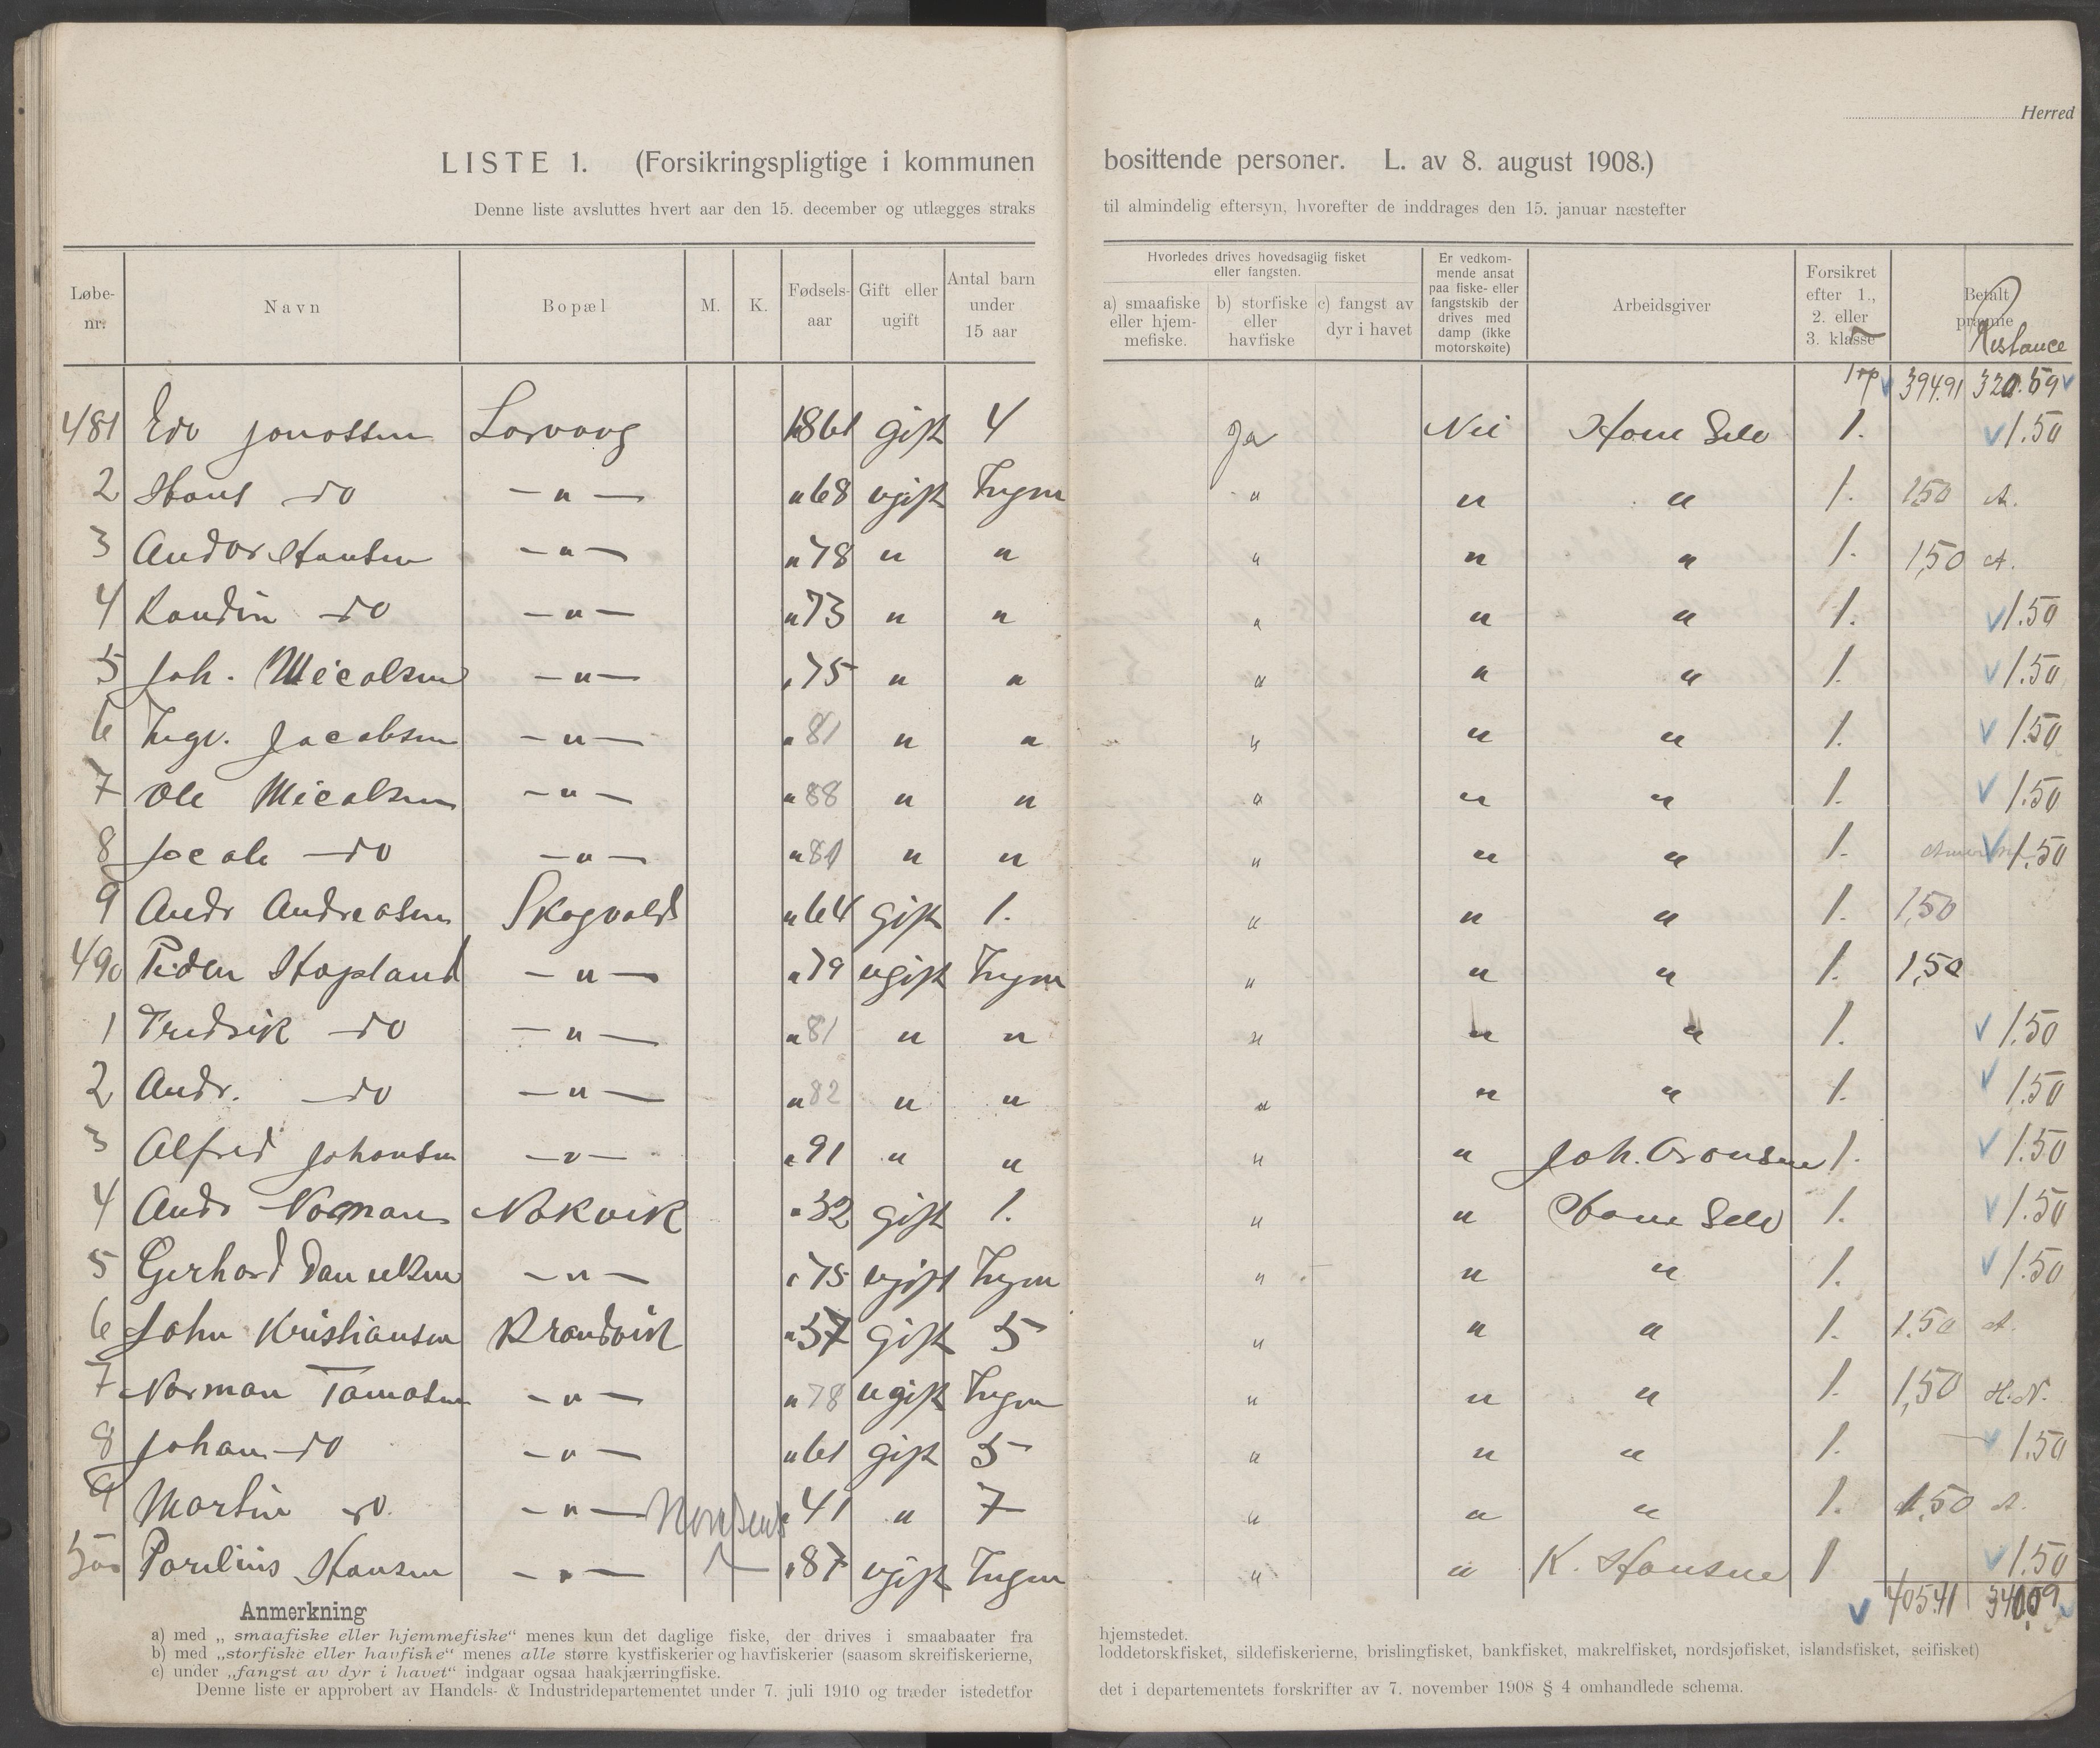 Herred
LISTE 1. (Forsikringspligtige i kommunen bosittende personer. L. av 8. august 1908.)
Denne liste avsluttes hvert aar den 15. december og utlægges straks til almindelig eftersyn, hvorefter de inddrages den 15. januar næstefter
Løbe-nr. Navn Bopæl M. K. Fødsels-aar Gift eller ugift Antal barn under 15 aar Hvorledes drives hovedsaglig fisket eller fangsten. a) smaafiske eller hjem-mefiske. b) storfiske eller havfiske c) fangst av dyr i havet Er vedkom-mende ansat paa fiske- eller fangstskib der drives med damp (ikke motorskøite) Arbeidsgiver Forsikret efter 1., 2. eller 3. klasse Betalt præmie Restance
394.91 320.59
481 Edv Jonassen 1861 gift 4 Ja Nei Ham Selv 1. 1.50
2 Hans do — " — " 68 ugift Ingen " " " 1. 1,50 A.
3 Andor Hansen — " — " 78 " " " " " 1. 1,50 A.
4 do — " — " 73 " " " " " 1. 1.50
5 Joh. Micalsen — " — " 75 " " " " " 1. 1.50
6 Ingv. Jacobsen — " — " 81 " " " " " 1. 1.50
7 Ole Micalsen — " — " 88 " " " " " 1. 1.50
8 do — " — " " " " " " 1. 1.50
9 Andr Andreasen Skogvold " 64 gift 1. " " " 1. 1,50
490 Peder Hopland — " — " 79 ugift Ingen " " " 1. 1,50
1 Fredrik do — " — " 81 " " " " " 1. 1.50
2 Andr. do — " — " 82 " " " " " 1. 1.50
3 Alfred Johansen — " — " 91 " " " " Joh. Aronsen 1. 1.50
4 Andr Norman Nokvik " 32 gift 1. " " Ham Selv 1. 1.50
5 Gerhard Danielsen — " — " 75 ugift Ingen " " " 1. 1.50
6 John Kristiansen Brandvik " 57 gift 5 " " " 1. 1.50 A.
7 Norman Tomasen — " — " 78 ugift Ingen " " " 1. 1,50 H.N.
8 Johan do — " — " 61 gift 5 " " " 1. 1.50
9 Martin do. — " — " 41 " 7 " " " 1. 1,50 A.
500 Parelius Hansen — " — " 87 ugift Ingen " " K. Hansen 1 1.50
405.41 340,09
Anmerkning
a) med „smaafiske eller hjemmefiske“ menes kun det daglige fiske, der drives i smaabaater fra hjemstedet.
b) med „storfiske eller havfiske“ menes alle større kystfiskerier og havfiskerier (saasom skreifiskerierne, loddetorskfisket, sildefiskerierne, brislingfisket, bankfisket, makrelfisket, nordsjøfisket, islandsfisket, seifisket)
c) under „fangst av dyr i havet“ indgaar ogsaa haakjærringfiske.
Denne liste er approbert av Handels- & Industridepartementet under 7. juli 1910 og træder istedetfor det i departementets forskrifter av 7. november 1908 § 4 omhandlede schema.